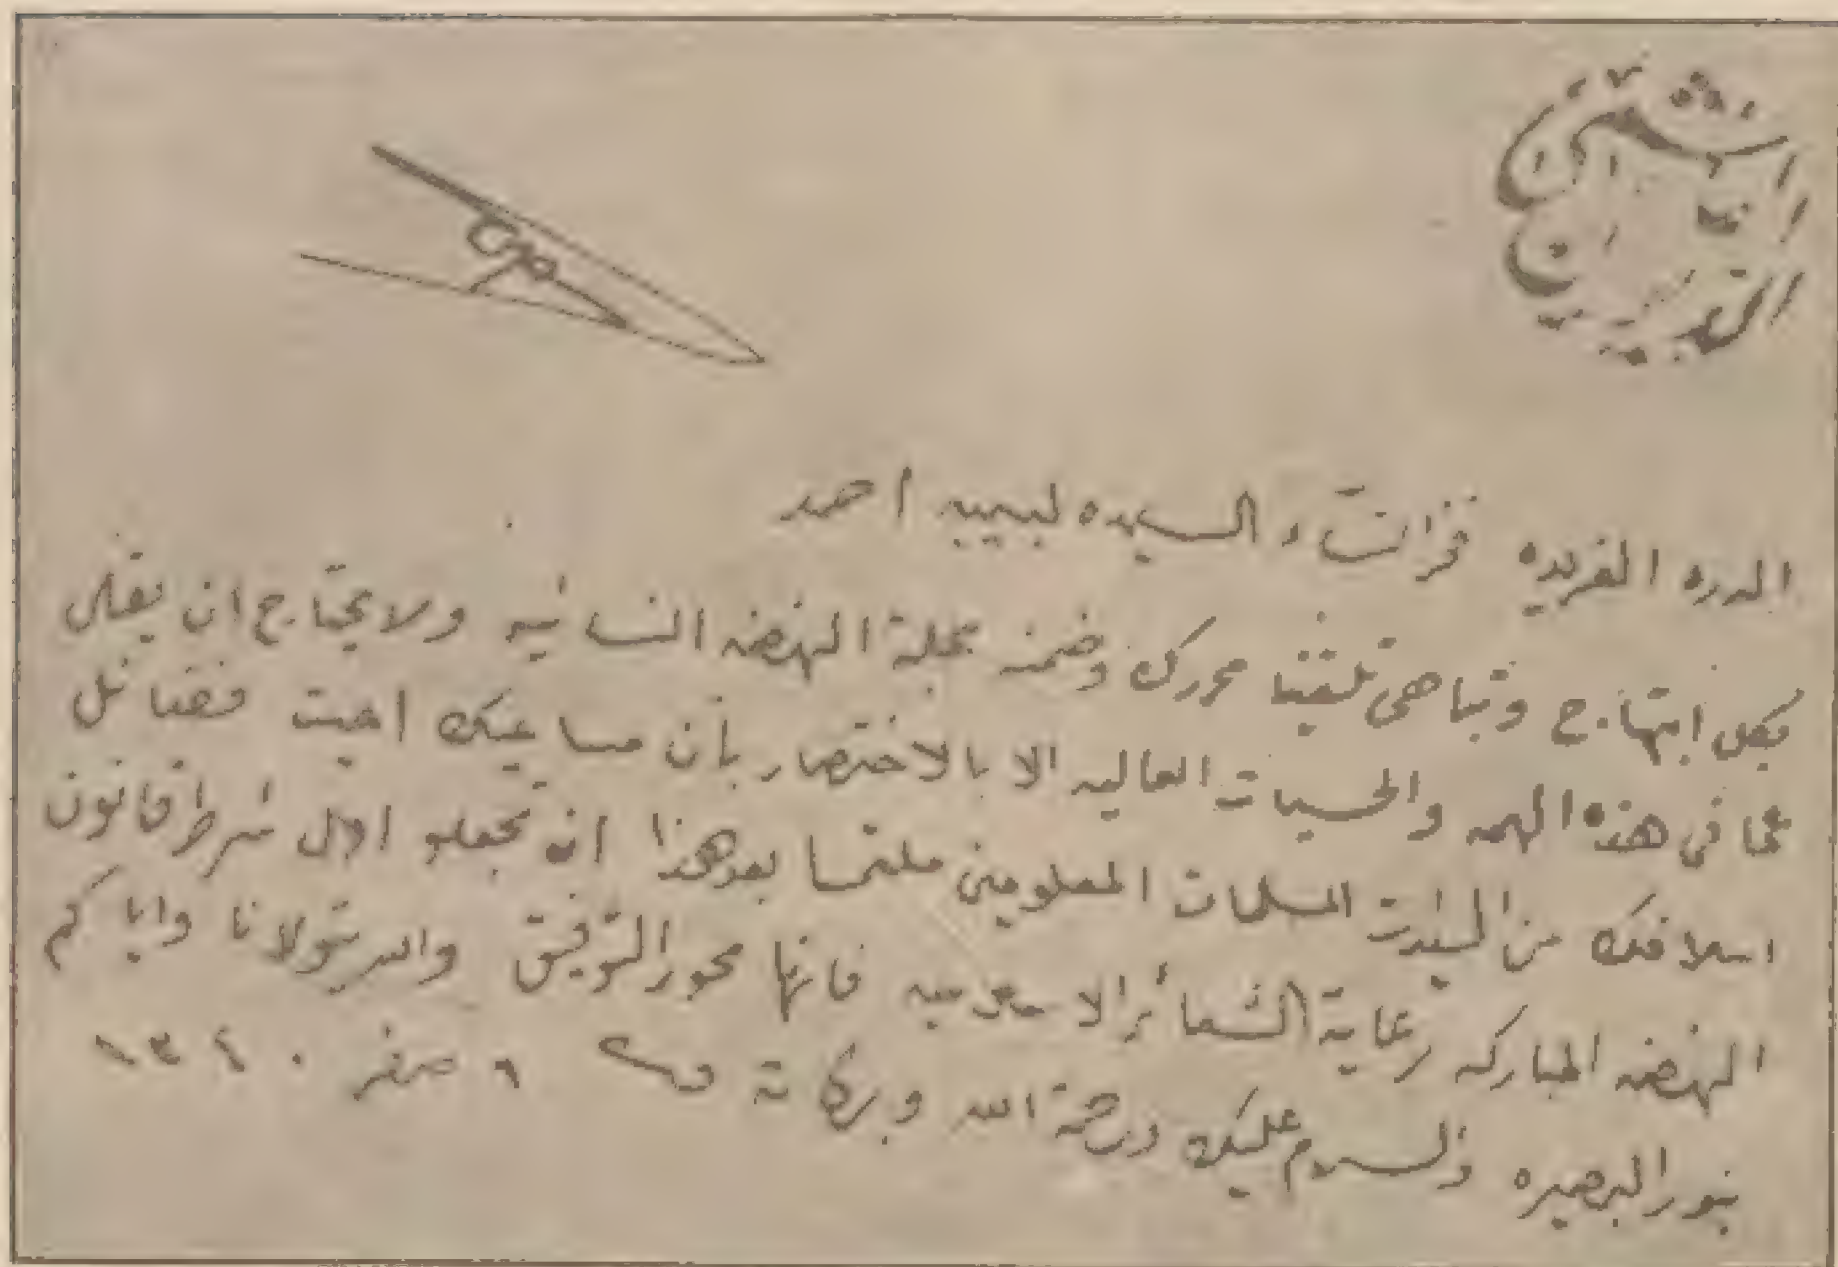 الدره الفريده فخر النساء السيده لبيبه احمد
بكل ابتهاج وتباهي تلقينا محررك وضمنه مجلة النهضه النسائيه ولا يحتاج ان يقال
عما في هذه الهمه والحسيات العاليه الا بالاختصار بأن مساعيك احيت فضائل
اسلافك من السيدات المسلمات المعلومين ملتمسا بعد هذا ان تجعلو اول شرط قانون
النهضه المباركه رعاية الشعائر الاسلاميه فانها محور التوفيق والله يتولانا واياكم
بنور البصيره والسلام عليك ورحمة الله وبركاته ٦ صفر ١٣٤٠